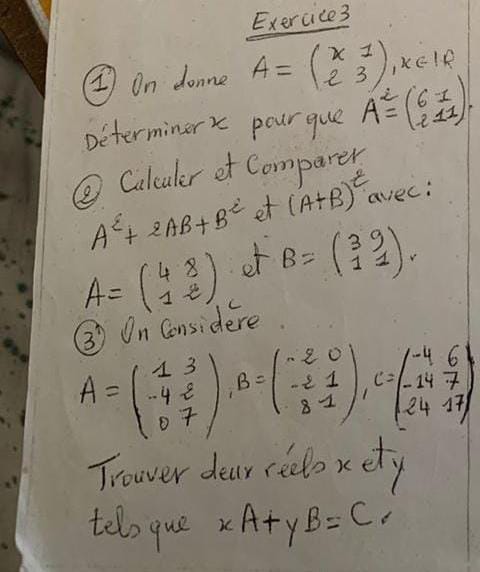 Exercice 3
① On donne A = ( x 1 ; 2 3 ), x ∈ IR
Déterminer x pour que A² = ( 6 1 ; 2 11 ).
② Calculer et Comparer
A² + 2AB + B² et (A+B)² avec :
A = ( 4 8 ; 1 2 ) et B = ( 3 9 ; 1 1 ).
③ On Considère
A = ( 1 3 ; -4 2 ; 0 7 ), B = ( -2 0 ; -2 1 ; 8 1 ), C = ( -4 6 ; -14 7 ; 24 17 )
Trouver deux réels x et y
tels que xA + yB = C.